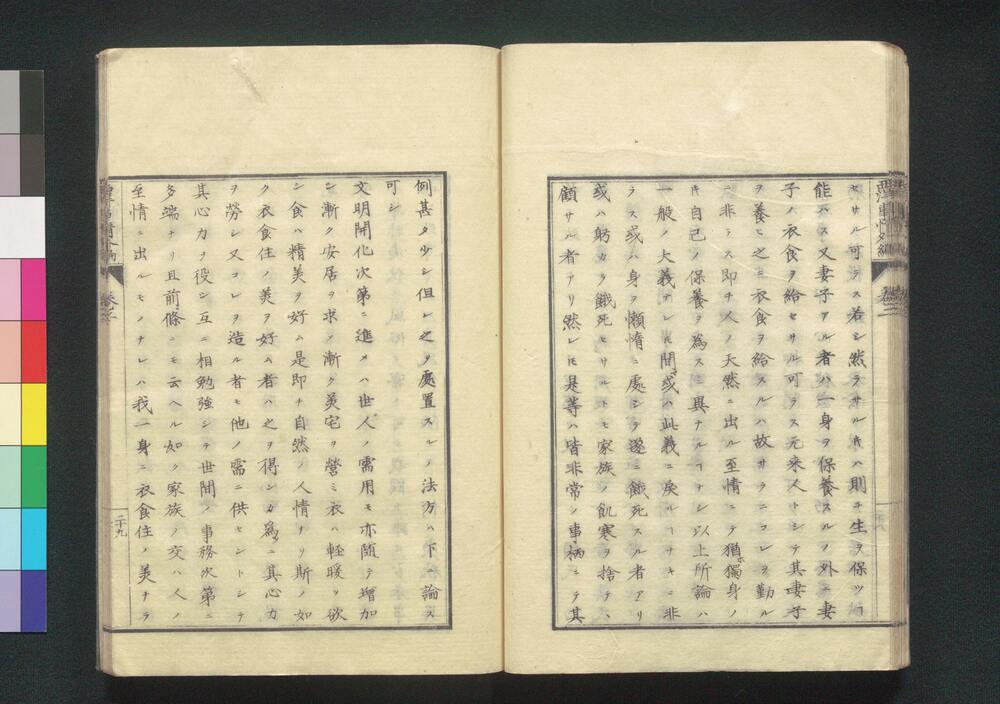 セサル可ラス若シ然ラサル𪜈ハ則チ生ヲ保ツヿ
能ハス又妻子アル者ハ一身ヲ保養スルノ外ニ妻
子ノ衣食ヲ給セサル可ラス元来人トシテ其妻子
ヲ養ヒ之ニ衣食ヲ給スルハ故サラニコレヲ勤ル
ニ非ラス即チ人ノ天然ニ出ル至情ニテ猶獨身ノ
𪜈自己ノ保養ヲ為スニ異ナルヿナシ以上所論ハ
一般ノ大義ナレ𪜈間〻或ハ此義ニ戻ルヿナキニ非
ラス或ハ身ヲ懶惰ニ處シテ遂ニ餓死スル者アリ
或ハ躬カラ餓死セサルトモ家族ノ飢寒ヲ捨テヽ
顧サル者アリ然レ𪜈是等ハ皆非常ノ事柄ニテ其
例甚タ少シ但シ之ヲ處置スルノ法方ハ下ニ論ス
可シ
文明開化次第ニ進メハ世人ノ需用モ亦随テ増加
シ漸ク安居ヲ求メ漸ク美宅ヲ營ミ衣ハ軽暖ヲ欲
シ食ハ精美ヲ好ム是即チ自然ノ人情ナリ斯ノ如
ク衣食住ノ美ヲ好ム者ハ之ヲ得ンカ為メニ其心力
ヲ勞シ又コレヲ造ル者モ他ノ需ニ供セントシテ
其心力ヲ役シ互ニ相勉強シテ世間ノ事務次第ニ
多端ナリ且前條ニモ云ヘル如ク家族ノ交ハ人ノ
至情ニ出ルモノナレハ我一身ニ衣食住ノ美ナラ
二十九